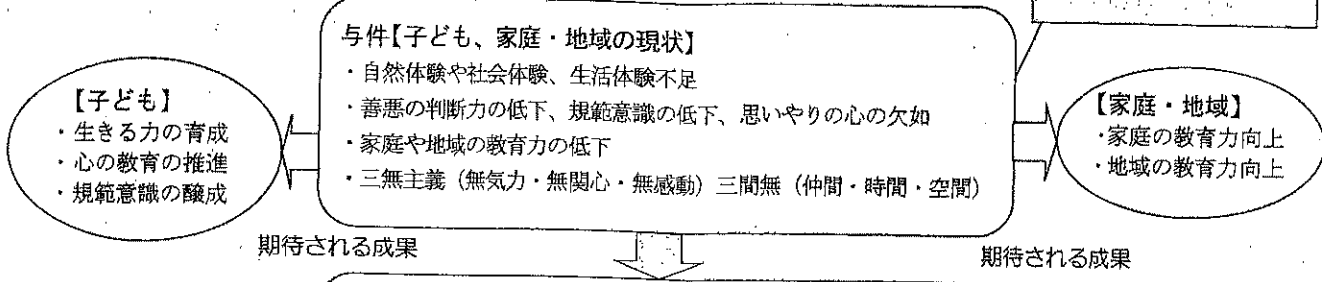 与件【子ども、家庭・地域の現状】
・自然体験や社会体験、生活体験不足
・善悪の判断力の低下、規範意識の低下、思いやりの心の欠如
・家庭や地域の教育力の低下
・三無主義（無気力・無関心・無感動）三間無（仲間・時間・空間）
【子ども】
・生きる力の育成
・心の教育の推進
・規範意識の醸成
【家庭・地域】
・家庭の教育力向上
・地域の教育力向上
期待される成果
期待される成果